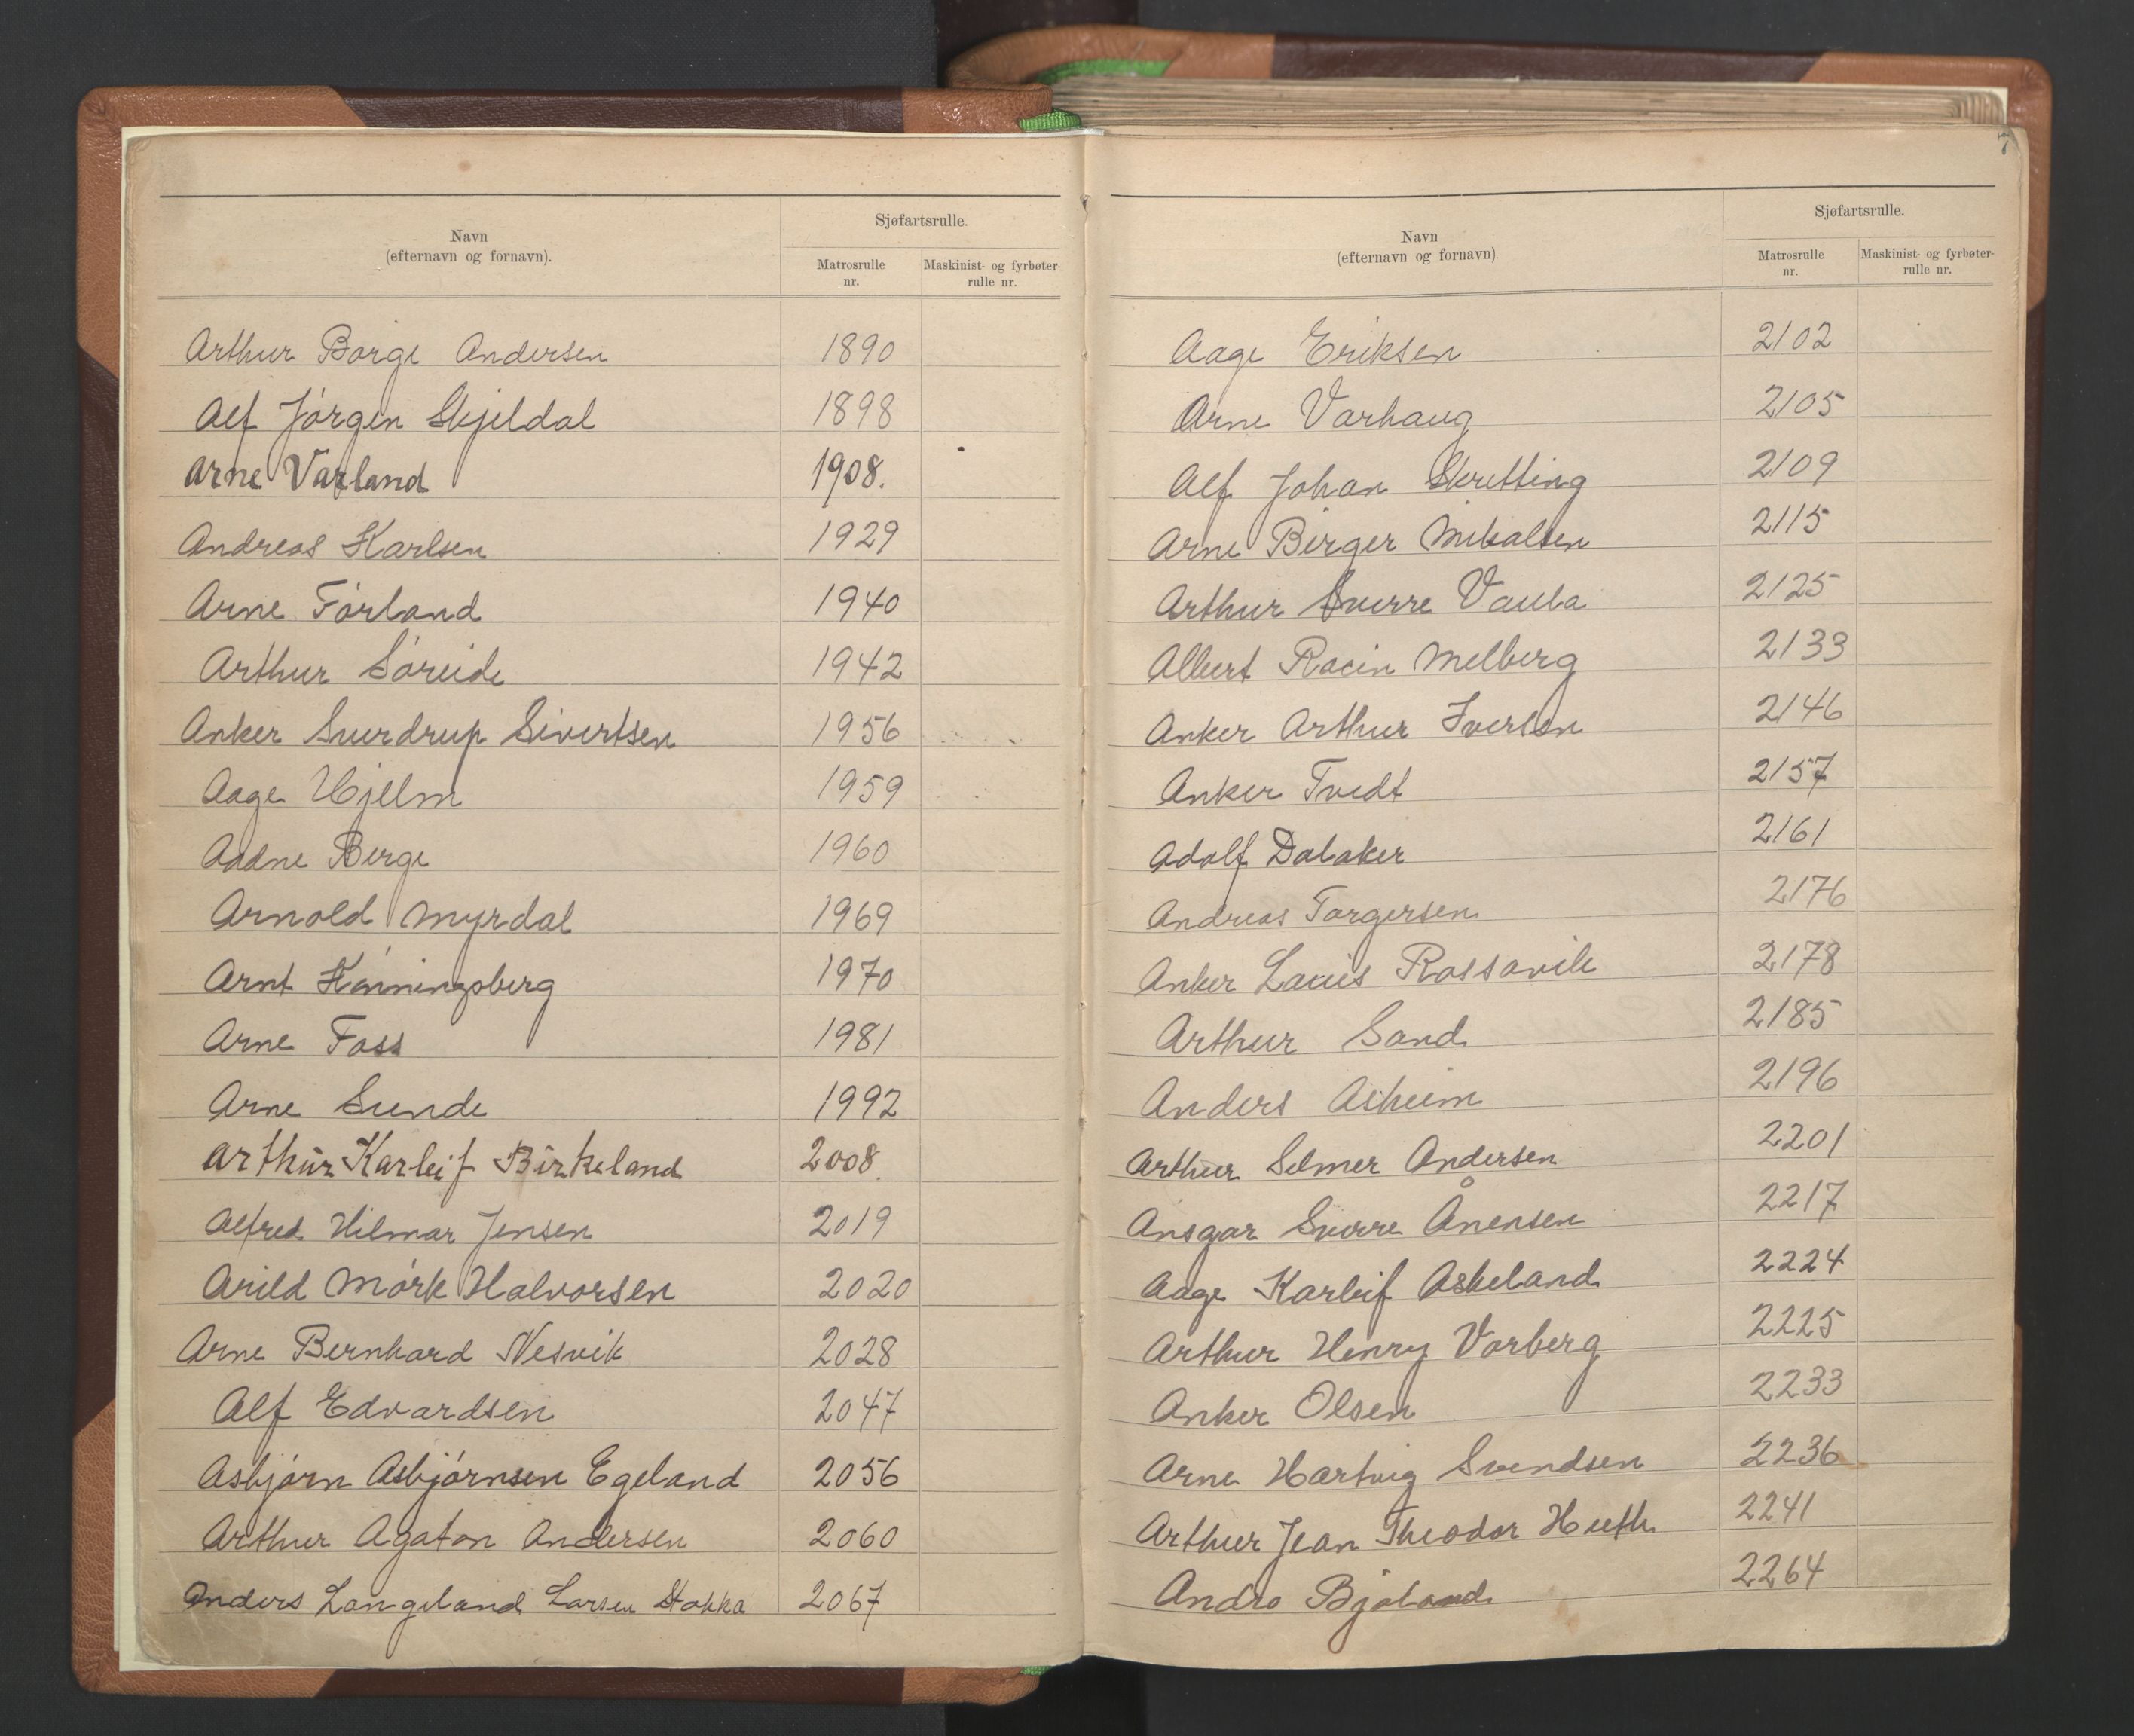 Navn
(efternavn og fornavn).
Sjøfartsrulle.
Matrosrulle
nr.
Maskinist- og fyrbøter-
rulle nr.
Arthur Borge Andersen 1890
Alf Jórgen Skjeldal 1898
Arne Varland 1908.
Andreas Karlsen 1929
Arne Fórland 1940
Arthur Sóreide 1942
Anker Sverdrup Sivertsen 1956
Aage Hjelm 1959
Aadne Berge 1960
Arnold Myrdal 1969
Arnt Kónningsberg 1970
Arne Foss 1981
Arne Sunde 1992
Arthur Karleif Birkeland 2008.
Alfred Hilmar Jensen 2019
Arild Mórk Halvorsen 2020
Arne Bernhard Nesvik 2028
Alf Edvardsen 2047
Asbjórn Asbjórnsen Egeland 2056
Arthur Agaton Andersen 2060
Anders Langeland Larsen Stokka 2067
7
Navn
(efternavn og fornavn).
Sjøfartsrulle.
Matrosrulle
nr.
Maskinist- og fyrbøter-
rulle nr.
Aage Eriksen 2102
Arne Varhaug 2105
Alf Johan Skretting 2109
Arne Birger Mikalsen 2115
Arthur Sverre Vaula 2125
Albert Racin Melberg 2133
Anker Arthur Iversen 2146
Anker Tvedt 2157
Adolf Dalaker 2161
Andreas Torgersen 2176
Anker Louis Rossavik 2178
Arthur Sand 2185
Anders Asheim 2196
Arthur Selmer Andersen 2201
Ansgar Sverre Ånensen 2217
Aage Karleif Askeland 2224
Arthur Henry Vorberg 2225
Anker Olsen 2233
Arne Hartvig Svendsen 2236
Arthur Jean Theodor Huth 2241
Andro Bjoland 2264